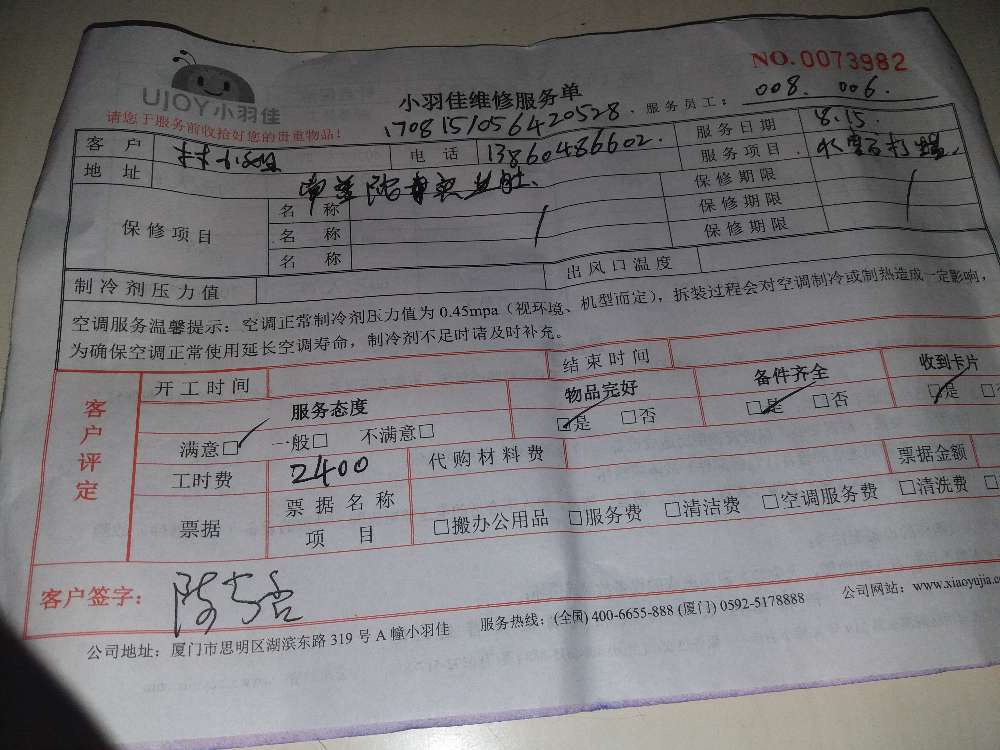 UJOY小羽佳
NO.0073982
小羽佳维修服务单
服务员工：008. 006.
请您于服务前收拾好您的贵重物品！
1708151056420528.
客 户
电 话 13860486602.
服务日期 8.15.
地 址
服务项目
保修项目
名 称
保修期限
名 称
保修期限
名 称
保修期限
制冷剂压力值
出风口温度
空调服务温馨提示：空调正常制冷剂压力值为0.45mpa（视环境、机型而定），拆装过程会对空调制冷或制热造成一定影响，
为确保空调正常使用延长空调寿命，制冷剂不足时请及时补充。
客户评定
开工时间
结束时间
服务态度
物品完好
备件齐全
收到卡片
满意□ 一般□ 不满意□
□是 □否
□是 □否
□是 □
工时费 2400
代购材料费
票据
票据名称
票据金额
项 目
□搬办公用品 □服务费 □清洁费 □空调服务费 □清洗费 □
客户签字：
公司地址：厦门市思明区湖滨东路319号A幢小羽佳
服务热线：(全国) 400-6655-888 (厦门) 0592-5178888
公司网站：www.xiaoyujia.co